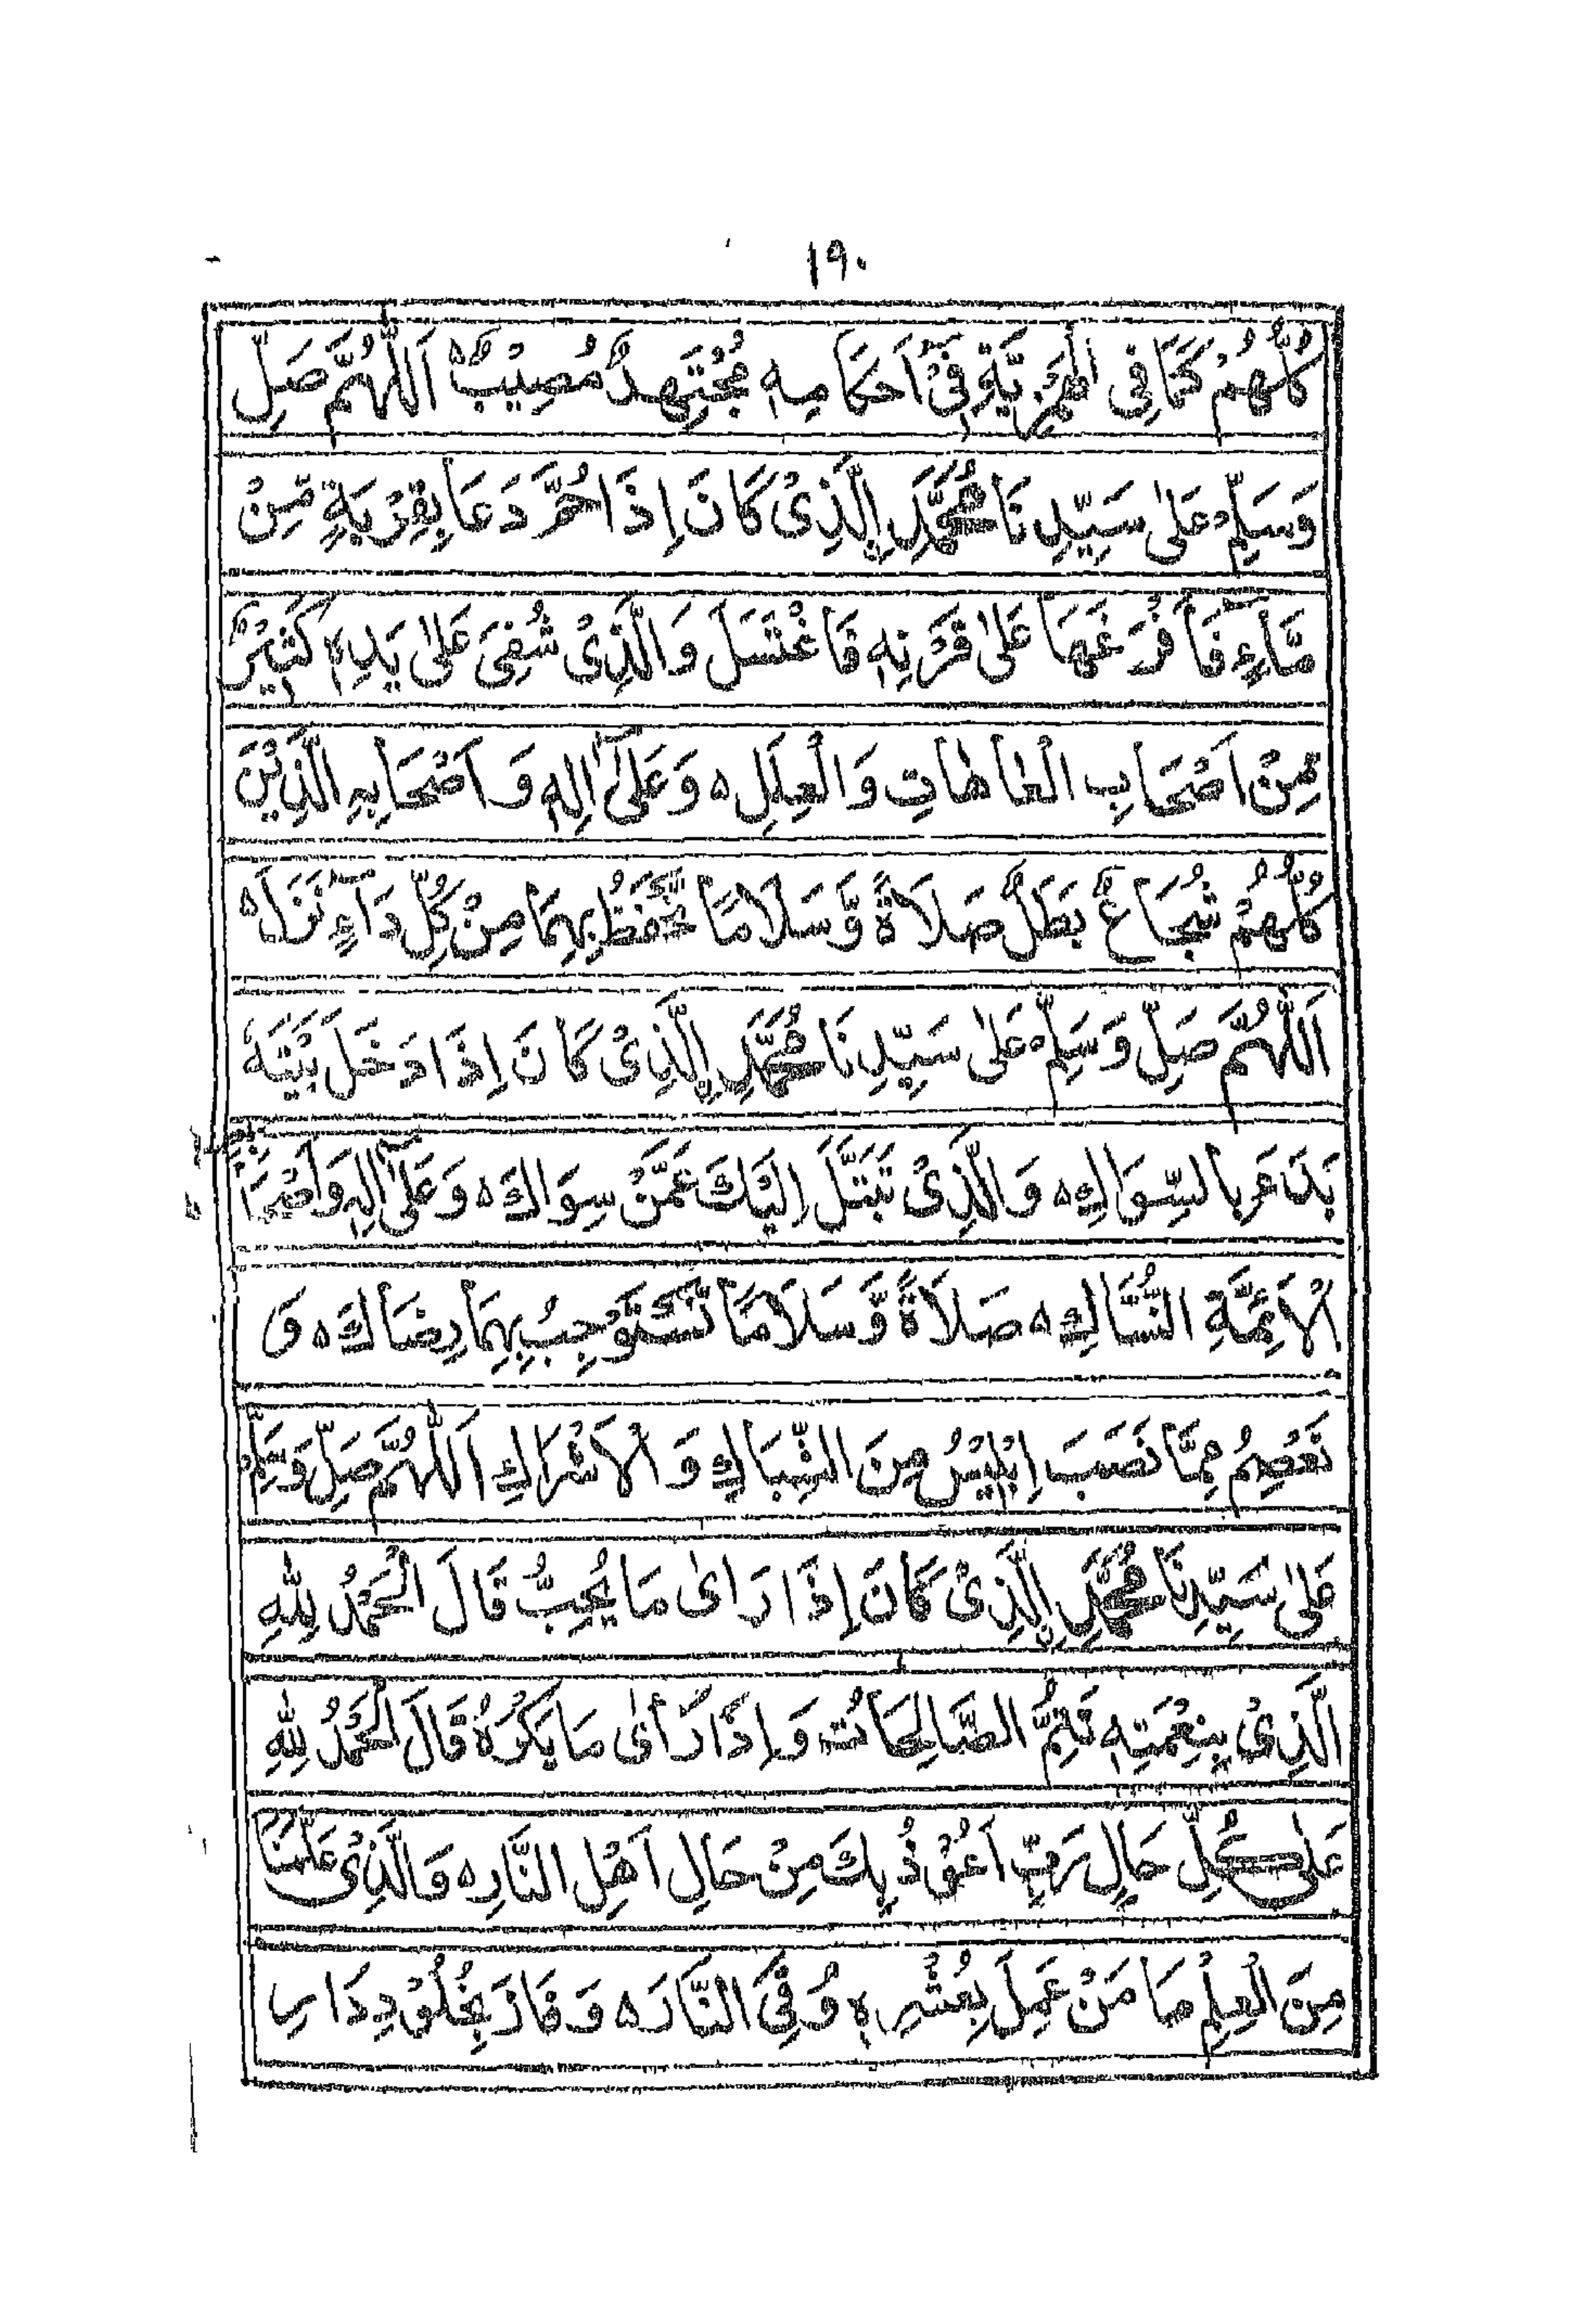 ١٩٠
كُلُّهُمْ كَمَا فِى الْهَمْزِيَّةِ فِىْ اَحْكَامِهٖ مُجْتَهِدٌ مُصِيْبٌ ه اَللّٰهُمَّ صَلِّ
وَسَلِّمْ عَلٰى سَيِّدِنَا مُحَمَّدِ اِلَّذِىْ كَانَ اِذَا حُمَّ دَعَا بِقِرْبَةٍ مِّنْ
مَّآءٍ فَاَفْرَغَهَا عَلٰى قَرْنِهٖ فَاغْتَسَلَ وَالَّذِىْ شُفِىَ عَلٰى يَدِهٖ كَثِيْرٌ
مِّنْ اَصْحَابِ الْعَاهَاتِ وَالْعِلَلِ ه وَعَلٰٓى اٰلِهٖ وَاَصْحَابِهِ الَّذِيْنَ
كُلُّهُمْ شُجَاعٌ بَطَلٌ صَلَاةً وَّسَلَامًا تَحْفَظُ بِهِمَا مِنْ كُلِّ دَآءٍ نَزَلَ ه
اَللّٰهُمَّ صَلِّ وَسَلِّمْ عَلٰى سَيِّدِنَا مُحَمَّدِ اِلَّذِىْ كَانَ اِذَا دَخَلَ بَيْتَهٗ
بَدَءَ بِالسِّوَاكِ ه وَالَّذِىْ تَبَتَّلَ اِلَيْكَ عَمَّنْ سِوَاكَ ه وَعَلٰٓى اٰلِهٖ وَاَصْحَابِهِ
الْاَئِمَّةِ النُّسَّاكِ ه صَلَاةً وَّسَلَامًا نَسْتَوْجِبُ بِهِمَا رِضَاكَ ه وَ
نَعْصِمُ مِمَّا نَصَبَ اِبْلِيْسُ مِنَ الشِّبَاكِ وَالْاَشْرَاكِ اَللّٰهُمَّ صَلِّ وَسَلِّمْ
عَلٰى سَيِّدِنَا مُحَمَّدِ اِلَّذِىْ كَانَ اِذَا رَاىٰ مَا يُحِبُّ قَالَ الْحَمْدُ لِلّٰهِ
الَّذِىْ بِنِعْمَتِهٖ تَتِمُّ الصَّالِحَاتُ وَاِذَا رَاىٰ مَا يَكْرَهُ قَالَ الْحَمْدُ لِلّٰهِ
عَلٰى كُلِّ حَالٍ رَبِّ اَعُوْذُ بِكَ مِنْ حَالِ اَهْلِ النَّارِ ه وَالَّذِىْ عَلَّمَنَا
مِنَ الْعِلْمِ مَا مَنْ عَمِلَ بِعُشْرِهٖ وُقِىَ النَّارَ ه وَفَازَ بِخُلُوْدِ دَارِ